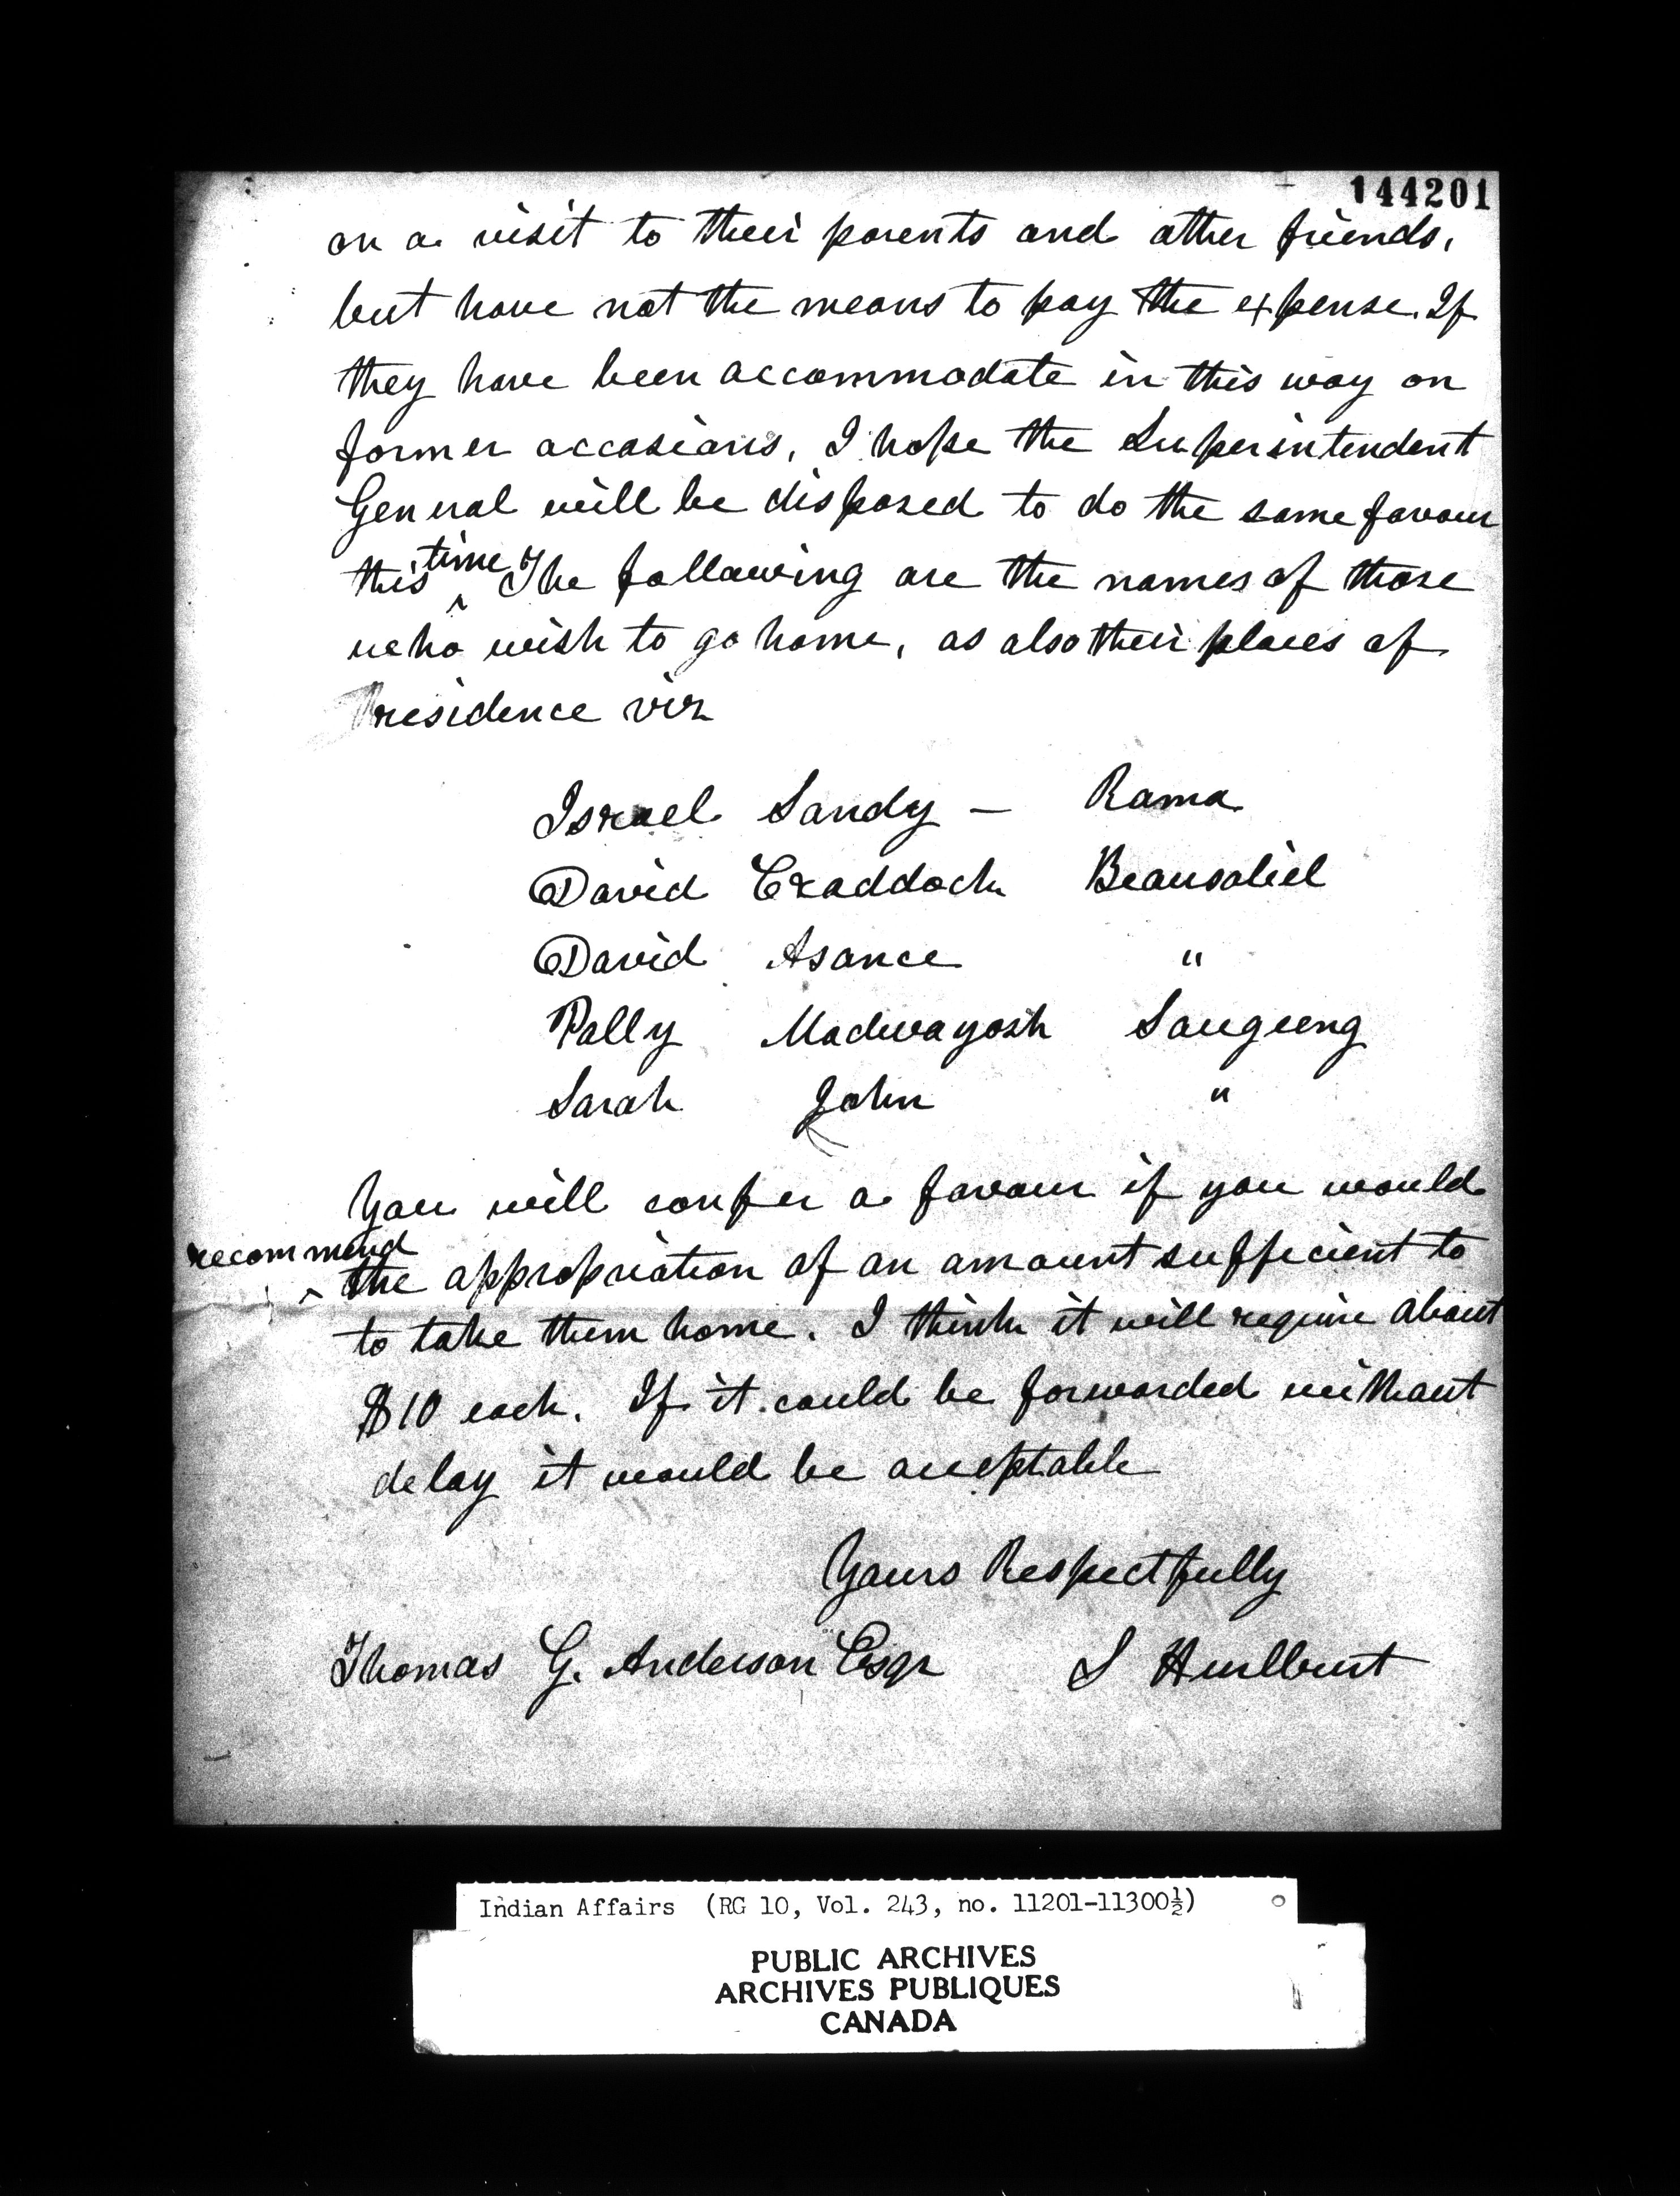 144201
on a visit to their parents and other friends,
but have not the means to pay the expense. If
they have been accommodate in this way on
former occasions, I hope the Superintendent
General will be disposed to do the same favour
this ^ time The following are the names of those
who wish to go home, as also their places of
residence viz
Israel Sandy — Rama
David Craddock Beausoliel
David Asance "
Polly Madwayosh Saugeeng
Sarah John "
You will confer a favour if you would
^ recommend the appropriation of an amount sufficient to
to take them home. I think it will require about
$10 each. If it could be forwarded without
delay it would be acceptable
Yours Respectfully
Thomas G. Anderson Esqr S Hurlburt
Indian Affairs (RG 10, Vol. 243, no. 11201-11300½)
PUBLIC ARCHIVES
ARCHIVES PUBLIQUES
CANADA